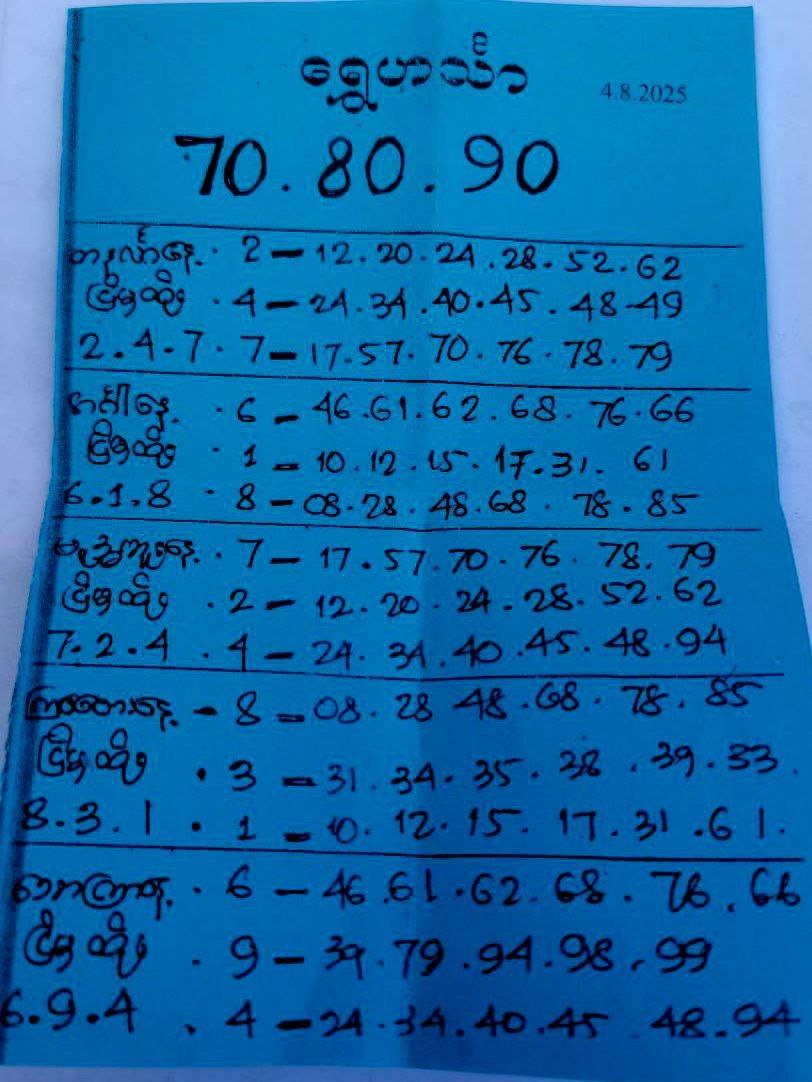 ရွှေဟင်္သာ 4.8.2025
70.80.90
တနင်္လာနေ့. 2 – 12.20.24.28.52.62
ငြိမ့်ထိုး . 4 – 24.34.40.45.48-49
2.4.7. 7 – 17.57.70.76.78.79
အင်္ဂါနေ့ . 6 – 46.61.62.68.76.66
ငြိမ့်ထိုး . 1 – 10.12.15.17.31. 61
6.1.8 . 8 – 08.28.48.68.78.85
ဗုဒ္ဓဟူးနေ့. 7 – 17.57.70.76.78.79
ငြိမ့်ထိုး . 2 – 12.20.24.28.52.62
7.2.4 . 4 – 24.34.40.45.48.94
ကြာသပတေးနေ့ – 8 – 08.28 48.68.78.85
ငြိမ့်ထိုး . 3 – 31.34.35.38.39.33.
8.3.1 . 1 – 10.12.15.17.31.61.
သောကြာနေ့. 6 – 46.61.62.68.76.66
ငြိမ့်ထိုး . 9 – 39.79.94.98.99
6.9.4 . 4 – 24.34.40.45 48.94